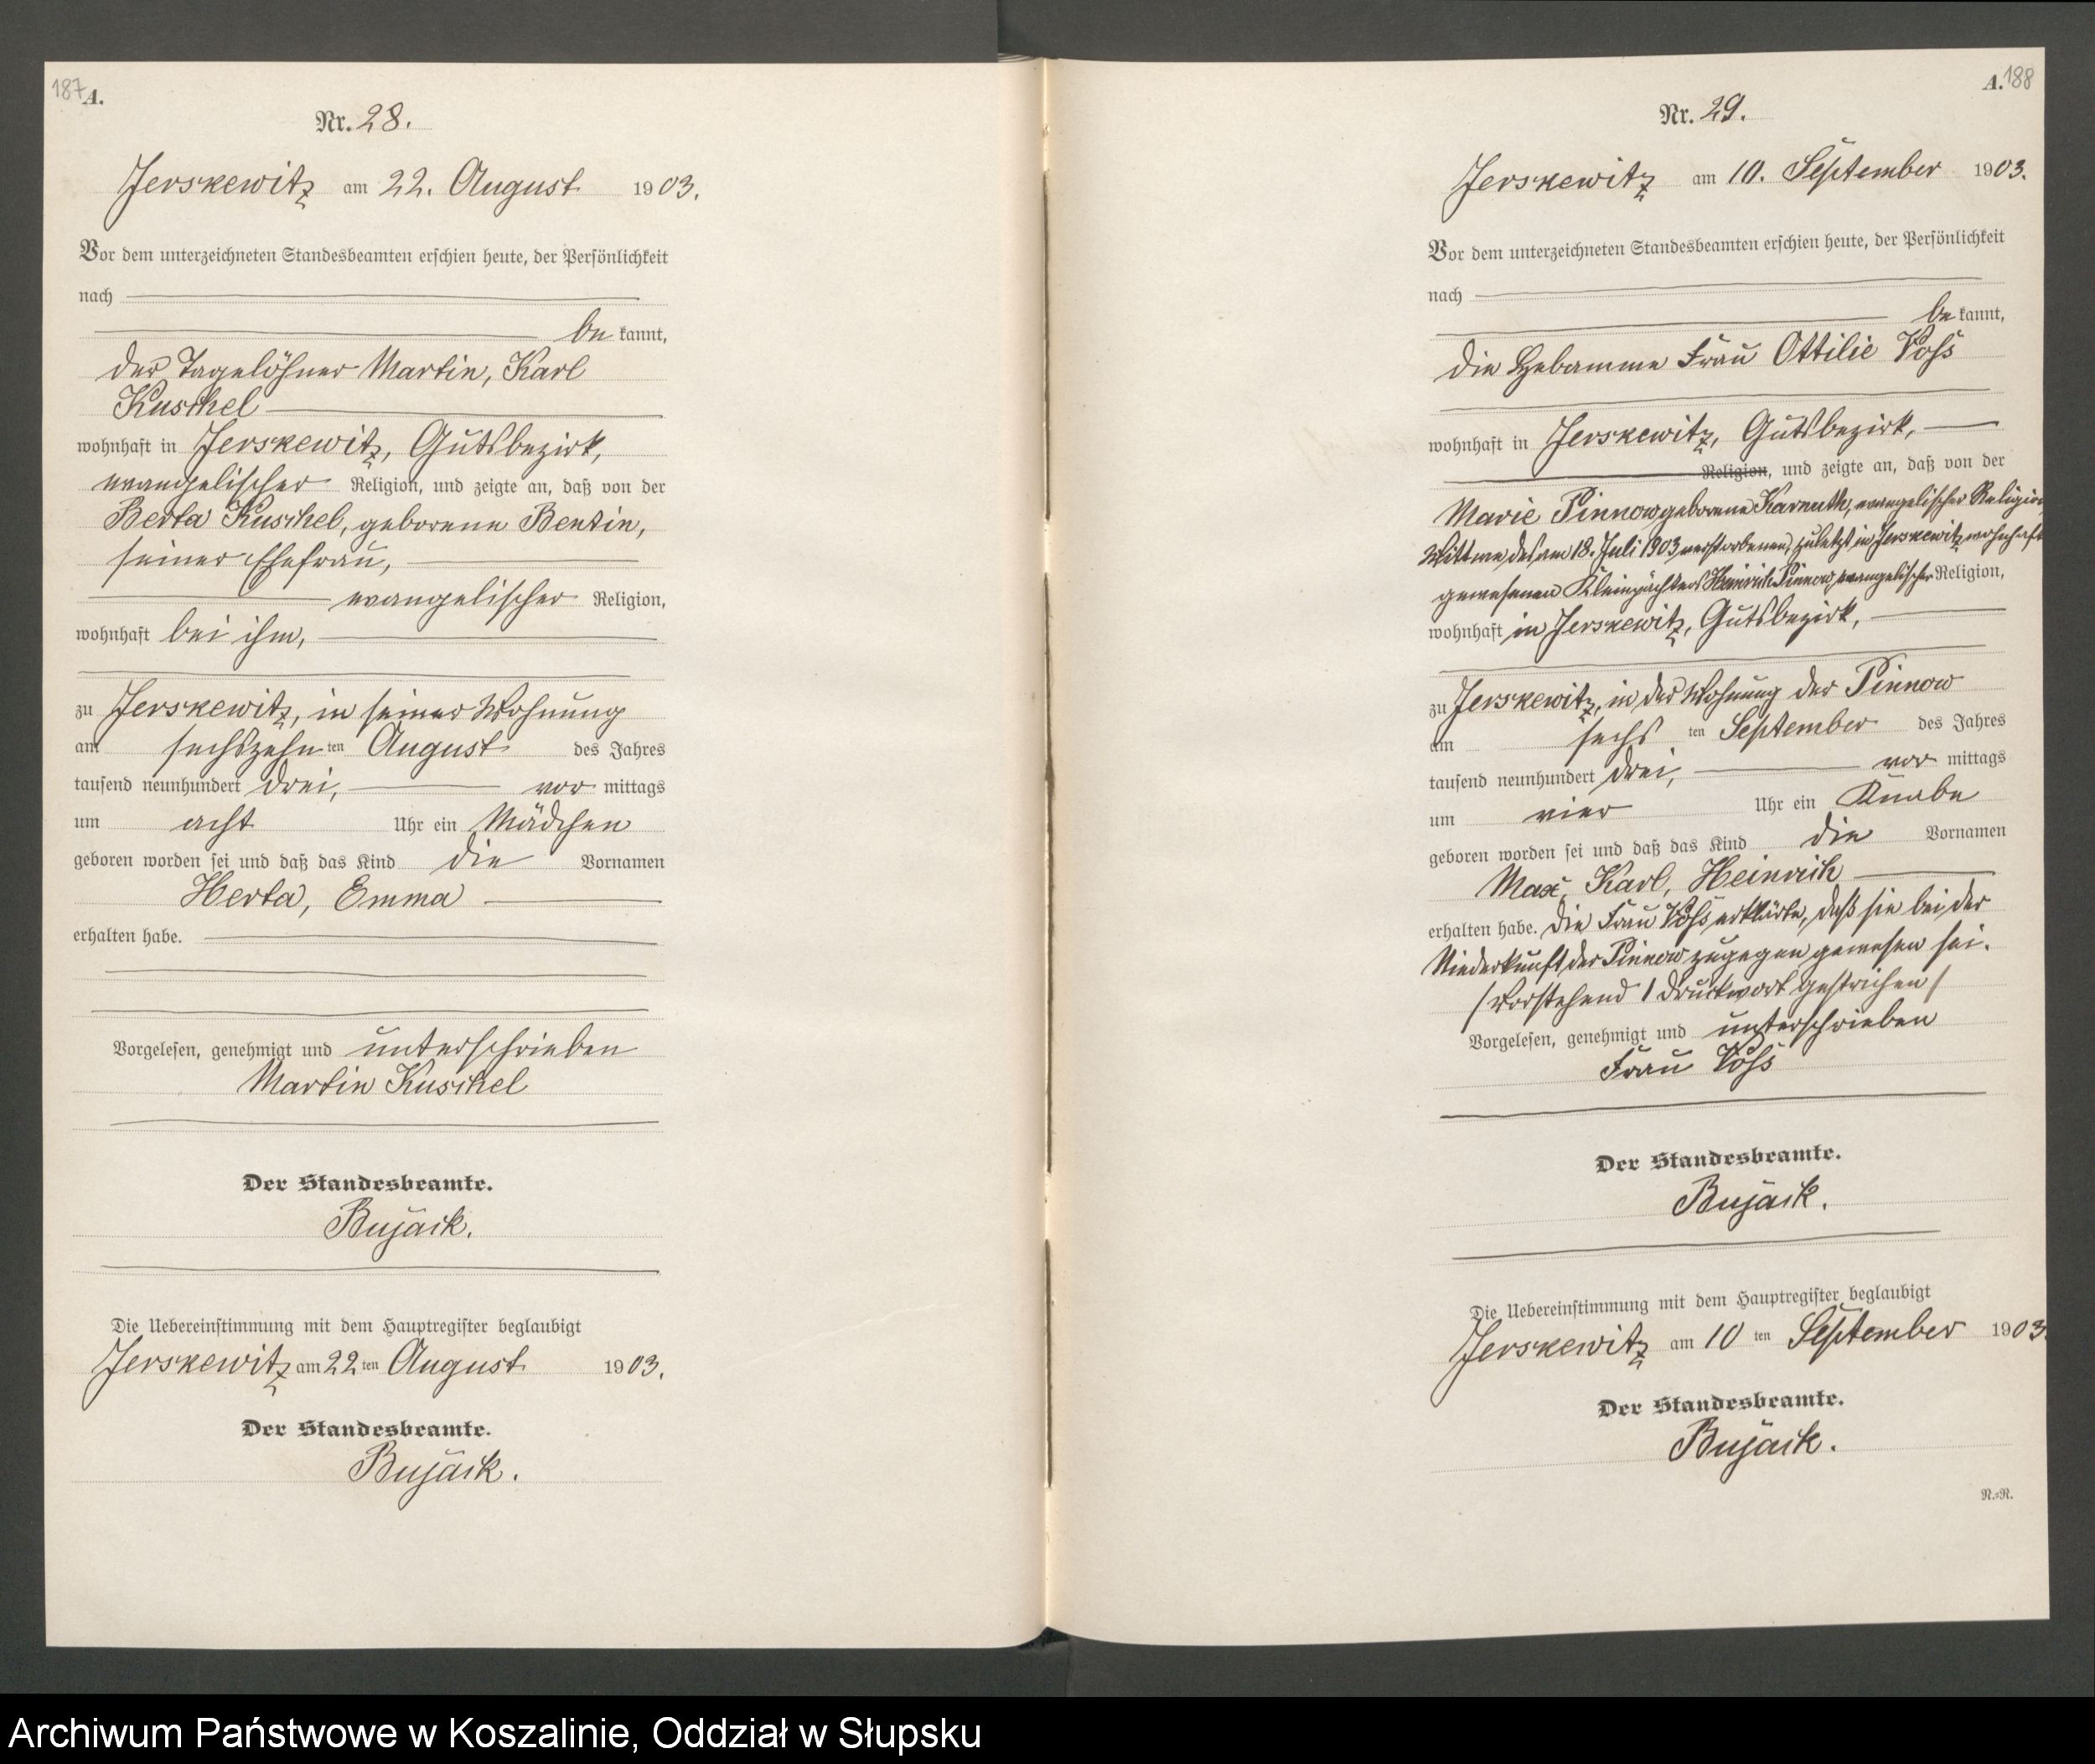 187
A.
Nr. 28.
Jerskewitz am 22. August 1903.
Vor dem unterzeichneten Standesbeamten erschien heute, der Persönlichkeit
nach
be kannt,
der Tagelöhner Martin, Karl
Kuschel
wohnhaft in Jerskewitz, Gutsbezirk,
evangelischer Religion, und zeigte an, daß von der
Berta Kuschel, geborene Bentin,
seiner Ehefrau,
evangelischer Religion,
wohnhaft bei ihm,
zu Jerskewitz, in seiner Wohnung
am sechszehn ten August des Jahres
tausend neunhundert drei, vor mittags
um acht Uhr ein Mädchen
geboren worden sei und daß das Kind die Vornamen
Herta, Emma
erhalten habe.
Vorgelesen, genehmigt und unterschrieben
Martin Kuschel
Der Standesbeamte.
Bujack.
Die Uebereinstimmung mit dem Hauptregister beglaubigt
Jerskewitz am 22 ten August 1903.
Der Standesbeamte.
Bujack.
A. 188
Nr. 29.
Jerskewitz am 10. September 1903.
Vor dem unterzeichneten Standesbeamten erschien heute, der Persönlichkeit
nach
be kannt,
die Hebamme Frau Ottilie Voß
wohnhaft in Jerskewitz, Gutsbezirk,
Religion, und zeigte an, daß von der
Marie Pinnow geborene Karnuth, evangelischer Religion
Wittwe des am 18. Juli 1903 verstorbenen, zuletzt in Jerskewitz wohnhaft
gewesenen Kleinpächters Heinrich Pinnow, evangelischer Religion,
wohnhaft in Jerskewitz, Gutsbezirk,
zu Jerskewitz, in der Wohnung der Pinnow
am sechs ten September des Jahres
tausend neunhundert drei, vor mittags
um vier Uhr ein Knabe
geboren worden sei und daß das Kind die Vornamen
Max, Karl, Heinrich
erhalten habe. Die Frau Voß erklärte, daß sie bei der
Niederkunft der Pinnow zugegen gewesen sei.
/Vorstehend 1 Druckwort gestrichen/
Vorgelesen, genehmigt und unterschrieben
Frau Voß
Der Standesbeamte.
Bujack.
Die Uebereinstimmung mit dem Hauptregister beglaubigt
Jerskewitz am 10 ten September 1903
Der Standesbeamte.
Bujack.
N.=N.
Archiwum Państwowe w Koszalinie, Oddział w Słupsku